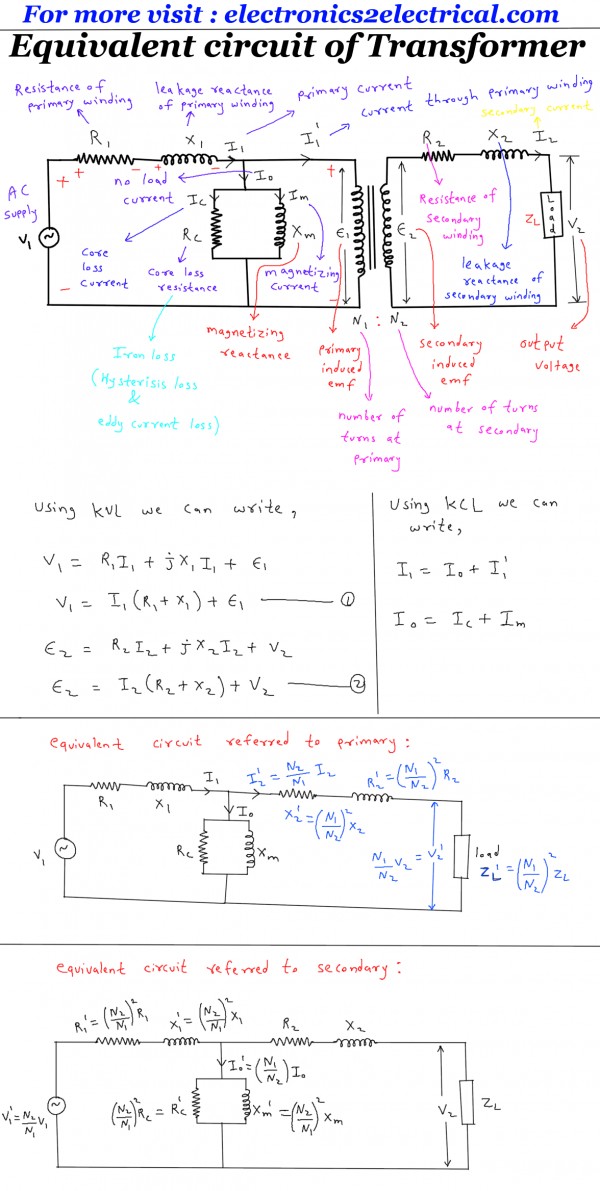 For more visit : electronics2electrical.com
Equivalent circuit of Transformer
Resistance of
primary winding
leakage reactance
of primary winding
primary current
current through primary winding
secondary current
R₁
X₁
I₁
I₁'
R₂
X₂
I₂
AC
supply
V₁
+
+
−
+
−
−
no load
current
I₀
Ic
Im
Rc
Xm
+
−
E₁
E₂
Resistance of
secondary
winding
ZL
Load
V₂
Core
loss
current
Core loss
resistance
magnetizing
current
leakage
reactance of
secondary winding
N₁ : N₂
Iron loss
(Hysterisis loss
&
eddy current loss)
magnetizing
reactance
primary
induced
emf
secondary
induced
emf
output
voltage
number of
turns at
primary
number of turns
at secondary
Using KVL we can write,
V₁ = R₁I₁ + jX₁I₁ + E₁
V₁ = I₁(R₁+X₁) + E₁ ——— ①
E₂ = R₂I₂ + jX₂I₂ + V₂
E₂ = I₂(R₂+X₂) + V₂ ——— ②
Using KCL we can
write,
I₁ = I₀ + I₁'
I₀ = Ic + Im
equivalent circuit referred to primary :
R₁
X₁
I₁
I₁' = N₂/N₁ I₂
R₂' = (N₁/N₂)² R₂
I₀
X₂' = (N₁/N₂)² X₂
V₁
Rc
Xm
N₁/N₂ V₂ = V₂'
load
ZL' = (N₁/N₂)² ZL
equivalent circuit referred to secondary :
R₁' = (N₂/N₁)² R₁
X₁' = (N₂/N₁)² X₁
R₂
X₂
I₀' = (N₁/N₂) I₀
V₁' = N₂/N₁ V₁
(N₂/N₁)² Rc = Rc'
Xm' = (N₂/N₁)² Xm
V₂
ZL